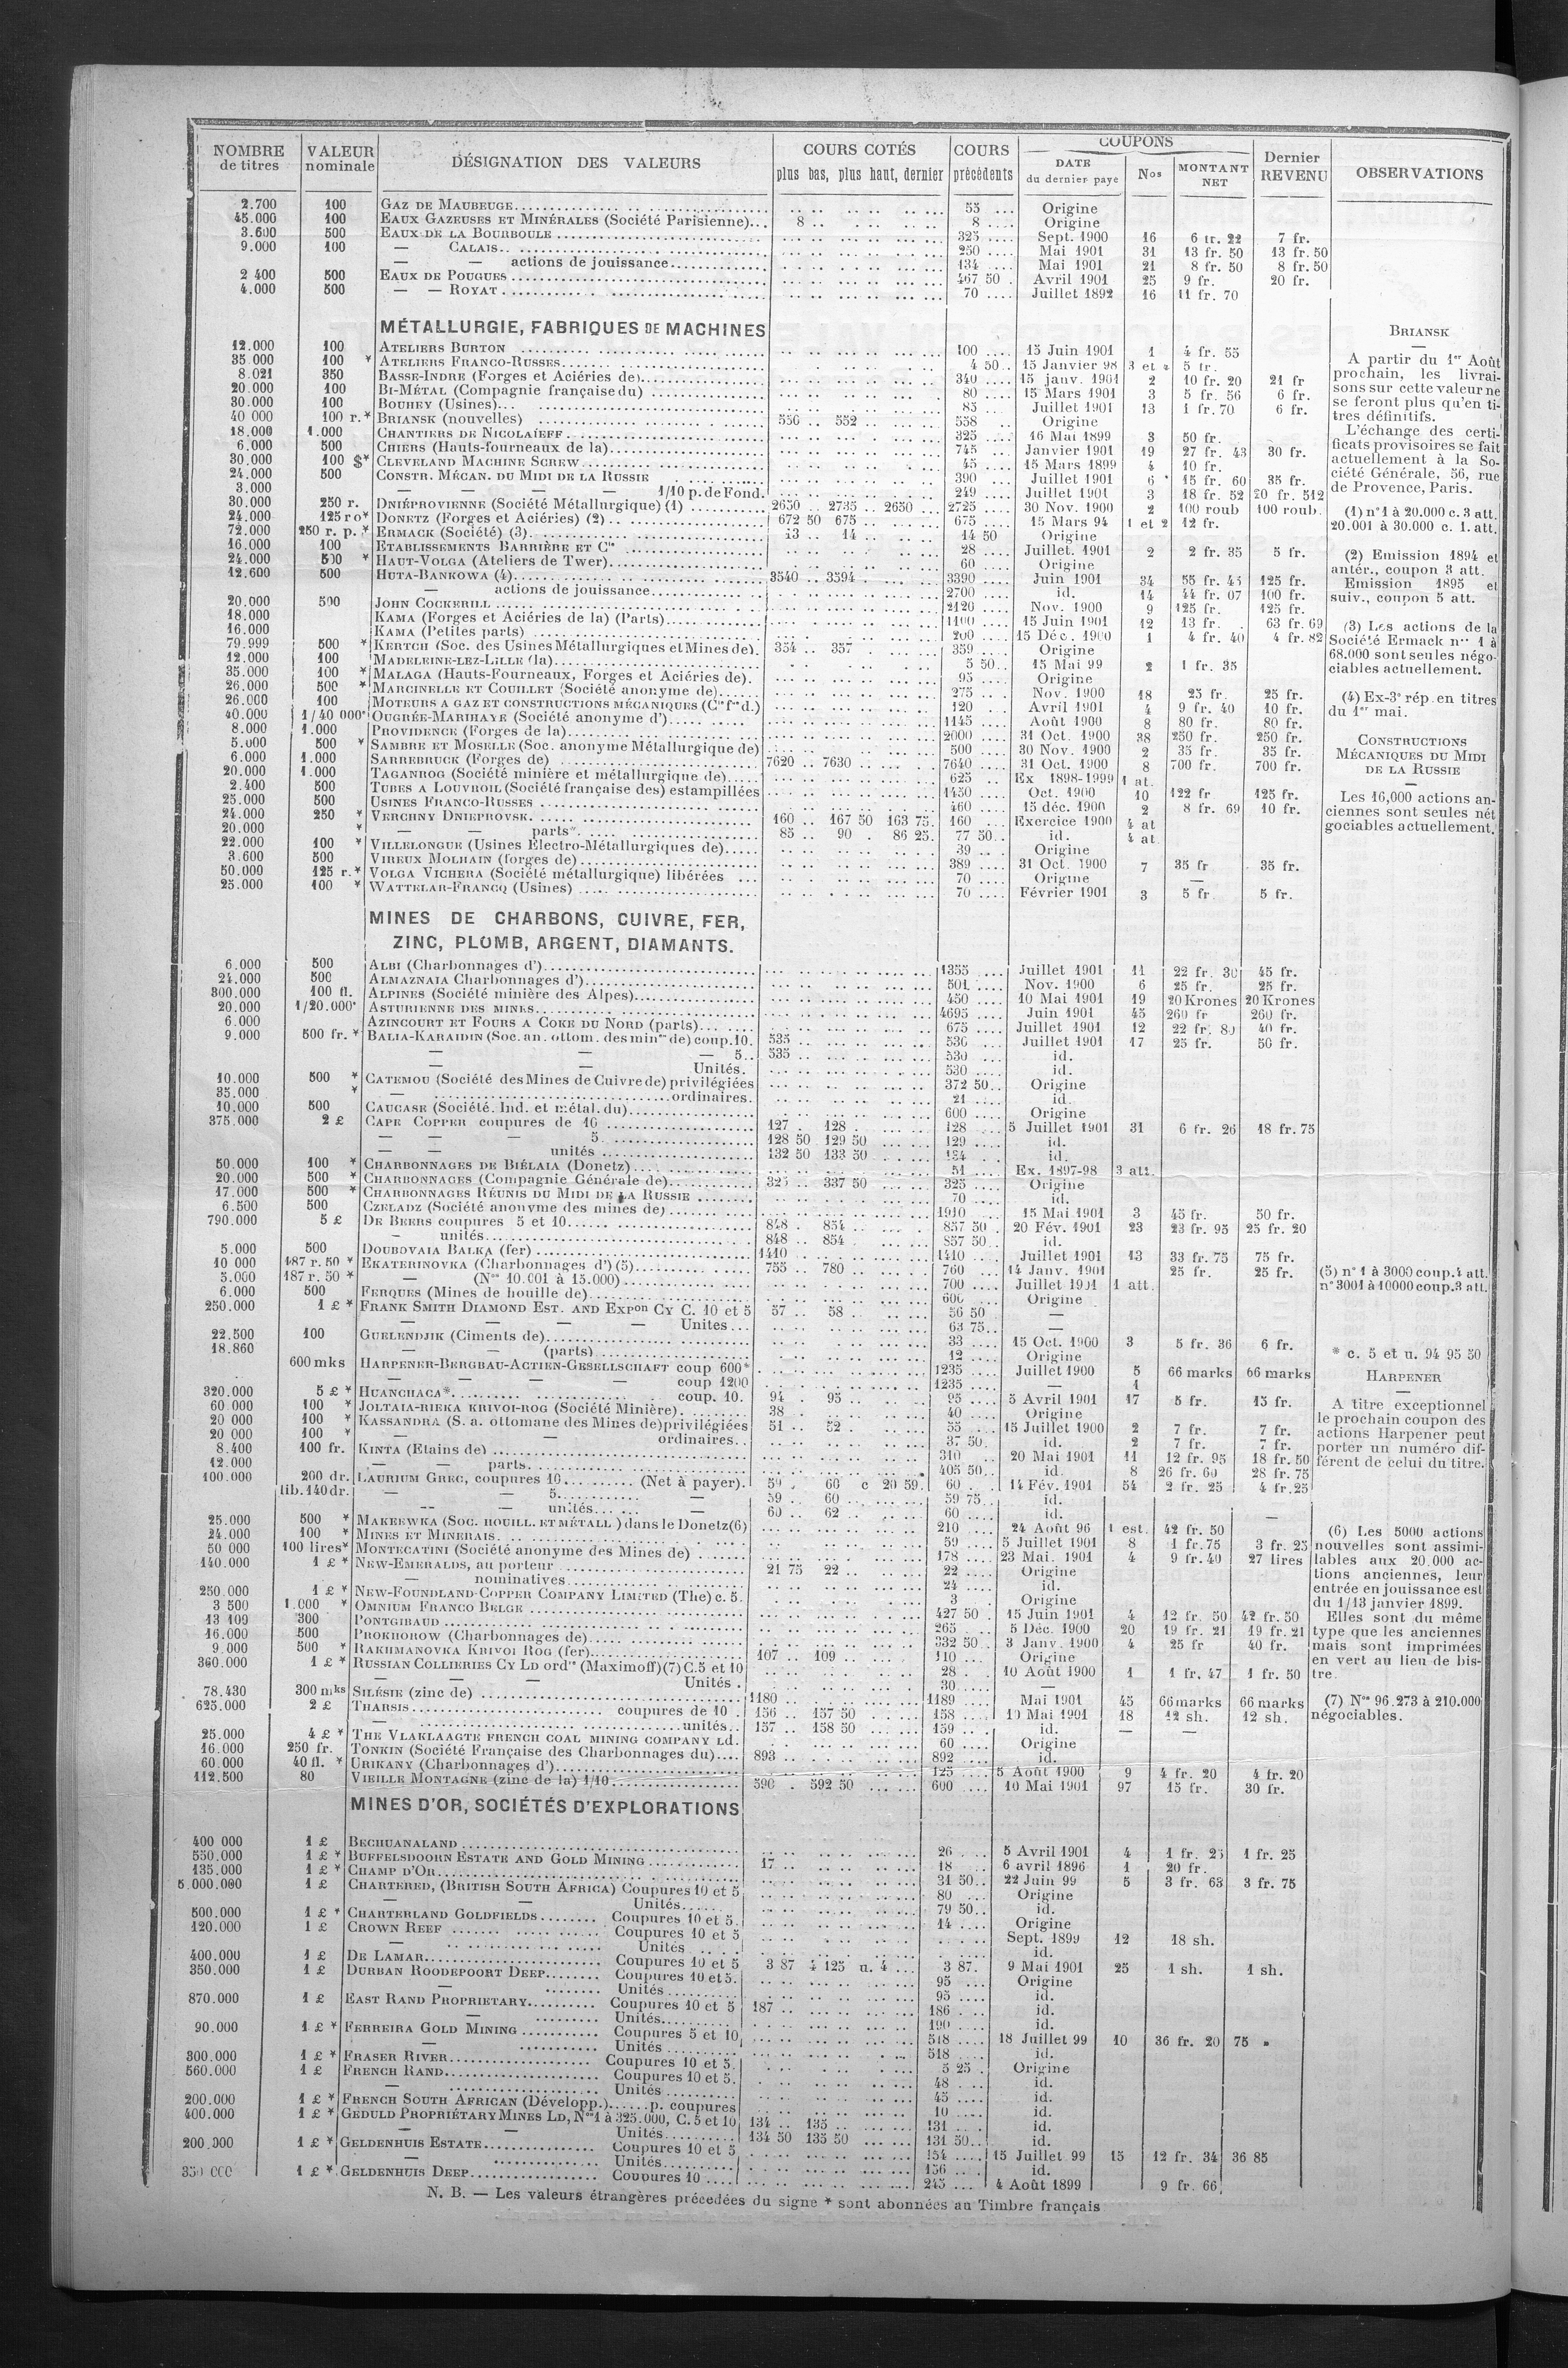 NOMBRE de titres | VALEUR nominale | DÉSIGNATION DES VALEURS | COURS COTÉS plus bas, plus haut, dernier | COURS précédents | COUPONS DATE du dernier paye | Nos | MONTANT NET | Dernier REVENU | OBSERVATIONS
2.700 100 GAZ DE MAUBEUGE 55 Origine
45.000 100 EAUX GAZEUSES ET MINÉRALES (Société Parisienne) 8 8 Origine
3.600 500 EAUX DE LA BOURBOULE 325 Sept. 1900 16 6 fr. 22 7 fr.
9.000 100 — CALAIS 250 Mai 1901 31 13 fr. 50 13 fr. 50
— — actions de jouissance 134 Mai 1901 21 8 fr. 50 8 fr. 50
2 400 500 EAUX DE POUGUES 467 50 Avril 1901 25 9 fr. 20 fr.
4.000 500 — — ROYAT 70 Juillet 1892 16 11 fr. 70
MÉTALLURGIE, FABRIQUES DE MACHINES
12.000 100 ATELIERS BURTON 100 15 Juin 1901 1 4 fr. 55
35.000 100 * ATELIERS FRANCO-RUSSES 4 50 15 Janvier 98 3 et 4 5 fr.
8.021 350 BASSE-INDRE (Forges et Aciéries de) 340 15 janv. 1901 2 10 fr. 20 21 fr
20.000 100 BI-MÉTAL (Compagnie française du) 80 15 Mars 1901 3 5 fr. 56 6 fr.
30.000 100 BOUHEY (Usines) 85 Juillet 1901 13 1 fr. 70 6 fr.
40 000 100 r.* BRIANSK (nouvelles) 550 552 558 Origine
18.000 1.000 CHANTIERS DE NICOLAÏEFF 325 16 Mai 1899 3 50 fr.
6.000 500 CHIERS (Hauts-fourneaux de la) 745 Janvier 1901 19 27 fr. 43 30 fr.
30.000 100 $* CLEVELAND MACHINE SCREW 45 15 Mars 1899 4 10 fr.
24.000 500 CONSTR. MÉCAN. DU MIDI DE LA RUSSIE 390 Juillet 1901 6 15 fr. 60 35 fr.
3.000 — — — — 1/10 p. de Fond. 249 Juillet 1901 3 18 fr. 52 20 fr. 512
30.000 250 r. DNIÉPROVIENNE (Société Métallurgique) (1) 2650 2735 2650 2725 30 Nov. 1900 2 100 roub 100 roub.
24.000 125 ro* DONETZ (Forges et Aciéries) (2) 672 50 675 675 15 Mars 94 1 et 2 12 fr.
72.000 250 r. p. * ERMACK (Société) (3) 13 14 14 50 Origine
16.000 100 ETABLISSEMENTS BARRIÈRE ET Cie 28 Juillet. 1901 2 2 fr. 35 5 fr.
24.000 500 * HAUT-VOLGA (Ateliers de Twer) 60 Origine
12.600 500 HUTA-BANKOWA (4) 3540 3594 3390 Juin 1901 34 55 fr. 45 125 fr.
— actions de jouissance 2700 id. 14 44 fr. 07 100 fr.
20.000 500 JOHN COCKERILL 2120 Nov. 1900 9 125 fr. 125 fr.
18.000 KAMA (Forges et Aciéries de la) (Parts) 1100 15 Juin 1901 12 13 fr. 63 fr. 69
16.000 KAMA (Petites parts) 200 15 Déc. 1900 1 4 fr. 40 4 fr. 82
79.999 500 * KERTCH (Soc. des Usines Métallurgiques et Mines de) 354 357 359 Origine
12.000 100 MADELEINE-LEZ-LILLE (la) 5 50 15 Mai 99 2 1 fr. 35
35.000 100 * MALAGA (Hauts-Fourneaux, Forges et Aciéries de) 95 Origine
26.000 500 * MARCINELLE ET COUILLET (Société anonyme de) 275 Nov. 1900 18 25 fr. 25 fr.
26.000 100 MOTEURS A GAZ ET CONSTRUCTIONS MÉCANIQUES (Cie fse d.) 120 Avril 1901 4 9 fr. 40 10 fr.
40.000 1/40 000* OUGRÉE-MARIHAYE (Société anonyme d') 1145 Août 1900 8 80 fr. 80 fr.
8.000 1.000 PROVIDENCE (Forges de la) 2000 31 Oct. 1900 38 250 fr. 250 fr.
5.000 500 * SAMBRE ET MOSELLE (Soc. anonyme Métallurgique de) 500 30 Nov. 1900 2 35 fr. 35 fr.
6.000 1.000 SARREBRUCK (Forges de) 7620 7630 7640 31 Oct. 1900 8 700 fr. 700 fr.
20.000 1.000 TAGANROG (Société minière et métallurgique de) 625 Ex 1898-1999 1 at.
2.400 500 TUBES A LOUVROIL (Société française des) estampillées 1450 Oct. 1900 10 122 fr 125 fr.
25.000 500 USINES FRANCO-RUSSES 460 15 déc. 1900 2 8 fr. 69 10 fr.
24.000 250 * VERCHNY DNIEPROVSK 160 167 50 163 75 160 Exercice 1900 4 at
20.000 * — — parts* 85 90 86 25 77 50 id. 4 at
22.000 100 * VILLELONGUE (Usines Electro-Métallurgiques de) 39 Origine
3.600 500 VIREUX MOLHAIN (forges de) 389 31 Oct. 1900 7 35 fr 35 fr.
50.000 125 r.* VOLGA VICHERA (Société métallurgique) libérées 70 Origine —
25.000 100 * WATTELAR-FRANCQ (Usines) 70 Février 1901 3 5 fr. 5 fr.
BRIANSK
A partir du 1er Août
prochain, les livrai-
sons sur cette valeur ne
se feront plus qu'en ti-
tres définitifs.
L'échange des certi-
ficats provisoires se fait
actuellement à la So-
ciété Générale, 56, rue
de Provence, Paris.
(1) n° 1 à 20.000 c. 3 att.
20.001 à 30.000 c. 1. att.
(2) Emission 1894 et
antér., coupon 3 att.
Emission 1895 et
suiv., coupon 5 att.
(3) Les actions de la
Société Ermack nos 1 à
68.000 sont seules négo-
ciables actuellement.
(4) Ex-3e rép. en titres
du 1er mai.
CONSTRUCTIONS
MÉCANIQUES DU MIDI
DE LA RUSSIE
Les 16,000 actions an-
ciennes sont seules nét
gociables actuellement.
MINES DE CHARBONS, CUIVRE, FER,
ZINC, PLOMB, ARGENT, DIAMANTS.
6.000 500 ALBI (Charbonnages d') 1355 Juillet 1901 11 22 fr. 30 45 fr.
24.000 500 ALMAZNAIA Charbonnages d') 501 Nov. 1900 6 25 fr. 25 fr.
300.000 100 fl. ALPINES (Société minière des Alpes) 450 10 Mai 1901 19 20 Krones 20 Krones
20.000 1/20.000* ASTURIENNE DES MINES 4695 Juin 1901 45 260 fr 260 fr.
6.000 AZINCOURT ET FOURS A COKE DU NORD (parts) 675 Juillet 1901 12 22 fr. 80 40 fr.
9.000 500 fr. * BALIA-KARAIDIN (Soc. an. ottom. des mines de) coup. 10. 535 536 Juillet 1901 17 25 fr. 50 fr.
— — — 5 535 530 id.
— Unités. 530 id.
10.000 500 * CATEMOU (Société des Mines de Cuivre de) privilégiées 372 50 Origine
35.000 * — ordinaires. 21 id.
10.000 500 CAUCASE (Société. Ind. et métal. du) 600 Origine
375.000 2 £ CAPE COPPER coupures de 10 127 128 128 5 Juillet 1901 31 6 fr. 26 18 fr. 75
— — — 5 128 50 129 50 129 id.
— — unités 132 50 133 50 id.
50.000 100 * CHARBONNAGES DE BIÉLAIA (Donetz) 51 Ex. 1897-98 3 att.
20.000 500 * CHARBONNAGES (Compagnie Générale de) 325 337 50 325 Origine
17.000 500 * CHARBONNAGES RÉUNIS DU MIDI DE LA RUSSIE 70 id.
6.500 500 CZELADZ (Société anonyme des mines de) 1910 15 Mai 1901 3 45 fr. 50 fr.
790.000 5 £ DE BEERS coupures 5 et 10 848 854 857 50 20 Fév. 1901 23 23 fr. 95 25 fr. 20
— unités 848 854 857 50 id.
5.000 500 DOUBOVAIA BALKA (fer) 1410 1410 Juillet 1901 13 33 fr. 75 75 fr.
10 000 187 r. 50 * EKATERINOVKA (Charbonnages d') (5) 755 780 760 14 Janv. 1901 25 fr. 25 fr.
5.000 187 r. 50 * — (Nos 10.001 à 15.000) 700 Juillet 1901 1 att.
6.000 500 FERQUES (Mines de houille de) 600 Origine
250.000 1 £ * FRANK SMITH DIAMOND EST. AND EXPon CY C. 10 et 5 57 58 56 50 —
— — — — Unites 63 75 —
22.500 100 GUELENDJIK (Ciments de) 33 15 Oct. 1900 3 5 fr. 36 6 fr.
18.860 — — (parts) 12 Origine
600 mks HARPENER-BERGBAU-ACTIEN-GESELLSCHAFT coup 600* 1235 Juillet 1900 5 66 marks 66 marks
— — — — coup 1200 1235 — 4
320.000 5 £ * HUANCHACA* coup. 10. 94 95 95 5 Avril 1901 17 5 fr. 15 fr.
60 000 100 * JOLTAIA-RIEKA KRIVOI-ROG (Société Minière) 38 40 Origine
20 000 100 * KASSANDRA (S. a. ottomane des Mines de) privilégiées 51 52 55 15 Juillet 1900 2 7 fr. 7 fr.
20 000 100 * — — ordinaires 37 50 id. 2 7 fr. 7 fr.
8.400 100 fr. KINTA (Etains de) 310 20 Mai 1901 11 12 fr. 95 18 fr. 50
12.000 — — parts 405 50 id. 8 26 fr. 60 28 fr. 75
100.000 200 dr. LAURIUM GREC, coupures 10 (Net à payer). 59 60 c 20 59 60 14 Fév. 1901 54 2 fr. 25 4 fr. 25
lib. 140 dr. — — 5 — 59 60 59 75 id.
— — unités — 60 62 60 id. —
25.000 500 * MAKEEWKA (SOC. HOUILL. ET MÉTALL) dans le Donetz (6) 210 24 Août 96 1 est. 42 fr. 50
24.000 100 * MINES ET MINERAIS 59 5 Juillet 1901 8 1 fr. 75 3 fr. 25
50 000 100 lires* MONTECATINI (Société anonyme des Mines de) 178 23 Mai. 1901 4 9 fr. 40 27 lires
140.000 1 £ * NEW-EMERALDS, au porteur 21 75 22 22 Origine
— nominatives 24 id.
250.000 1 £ * NEW-FOUNDLAND-COPPER COMPANY LIMITED (The) c. 5. 3 Origine
3 500 1.000 * OMNIUM FRANCO BELGE 427 50 15 Juin 1901 4 12 fr. 50 42 fr. 50
13 109 300 PONTGIBAUD 265 5 Déc. 1900 20 19 fr. 21 19 fr. 21
16.000 500 PROKHOROW (Charbonnages de) 332 50 3 Janv. 1900 4 25 fr 40 fr.
9.000 500 * RAKHMANOVKA KRIVOI ROG (fer) 107 109 110 Origine
360.000 1 £ * RUSSIAN COLLIERIES CY LD ordres (Maximoff) (7) C. 5 et 10 28 10 Août 1900 1 1 fr. 47 1 fr. 50
— — — Unités. 30 —
78.430 300 mks SILÉSIE (zinc de) 1180 1189 Mai 1901 45 66 marks 66 marks
625.000 2 £ THARSIS coupures de 10 156 157 50 158 10 Mai 1901 18 12 sh. 12 sh.
— unités 157 158 50 159 id. — —
25.000 4 £ * THE VLAKLAAGTE FRENCH COAL MINING COMPANY Ld. 60 Origine
16.000 250 fr. TONKIN (Société Française des Charbonnages du) 893 892 id.
60.000 40 fl. * URIKANY (Charbonnages d') 125 5 Août 1900 9 4 fr. 20 4 fr. 20
112.500 80 VIEILLE MONTAGNE (zinc de la) 1/10 590 592 50 600 10 Mai 1901 97 15 fr. 30 fr.
(5) n° 1 à 3000 coup. 4 att.
n° 3001 à 10000 coup. 3 att.
* c. 5 et u. 94 95 50
HARPENER
A titre exceptionnel
le prochain coupon des
actions Harpener peut
porter un numéro dif-
férent de celui du titre.
(6) Les 5000 actions
nouvelles sont assimi-
lables aux 20.000 ac-
tions anciennes, leur
entrée en jouissance est
du 1/13 janvier 1899.
Elles sont du même
type que les anciennes
mais sont imprimées
en vert au lieu de bis-
tre.
(7) Nos 96.273 à 210.000
négociables.
MINES D'OR, SOCIÉTÉS D'EXPLORATIONS
400 000 1 £ BECHUANALAND 26 5 Avril 1901 4 1 fr. 25 1 fr. 25
550.000 1 £ * BUFFELSDOORN ESTATE AND GOLD MINING 17 18 6 avril 1896 1 20 fr.
135.000 1 £ * CHAMP D'OR 31 50 22 Juin 99 5 3 fr. 63 3 fr. 75
5.000.000 1 £ CHARTERED, (BRITISH SOUTH AFRICA) Coupures 10 et 5 80 Origine
— — Unités 79 50 id.
500.000 1 £ * CHARTERLAND GOLDFIELDS Coupures 10 et 5. 14 Origine
120.000 1 £ CROWN REEF Coupures 10 et 5 Sept. 1899 12 18 sh.
— Unités id.
400.000 1 £ DE LAMAR Coupures 10 et 5 3 87 4 125 u. 4 3 87. 9 Mai 1901 25 1 sh. 1 sh.
350.000 1 £ DURBAN ROODEPOORT DEEP Coupures 10 et 5. 95 Origine
— Unités 95 id.
870.000 1 £ EAST RAND PROPRIETARY Coupures 10 et 5 187 186 id.
— Unités 190 id.
90.000 1 £ * FERREIRA GOLD MINING Coupures 5 et 10 518 18 Juillet 99 10 36 fr. 20 75 »
— Unités 518 id.
300.000 1 £ * FRASER RIVER Coupures 10 et 5. 5 25 Origine
560.000 1 £ FRENCH RAND Coupures 10 et 5. 48 id.
— Unités 45 id.
200.000 1 £ * FRENCH SOUTH AFRICAN (Développ.) p. coupures 10 id.
400.000 1 £ * GEDULD PROPRIÉTARY MINES LD, Nos 1 à 325.000, C. 5 et 10 134 135 131 id.
— — Unités 134 50 135 50 131 50 id.
200.000 1 £ * GELDENHUIS ESTATE Coupures 10 et 5 154 15 Juillet 99 15 12 fr. 34 36 85
— Unités 156 id.
350 000 1 £ * GELDENHUIS DEEP Coupures 10 245 4 Août 1899 9 fr. 66
N. B. — Les valeurs étrangères précedées du signe * sont abonnées au Timbre français